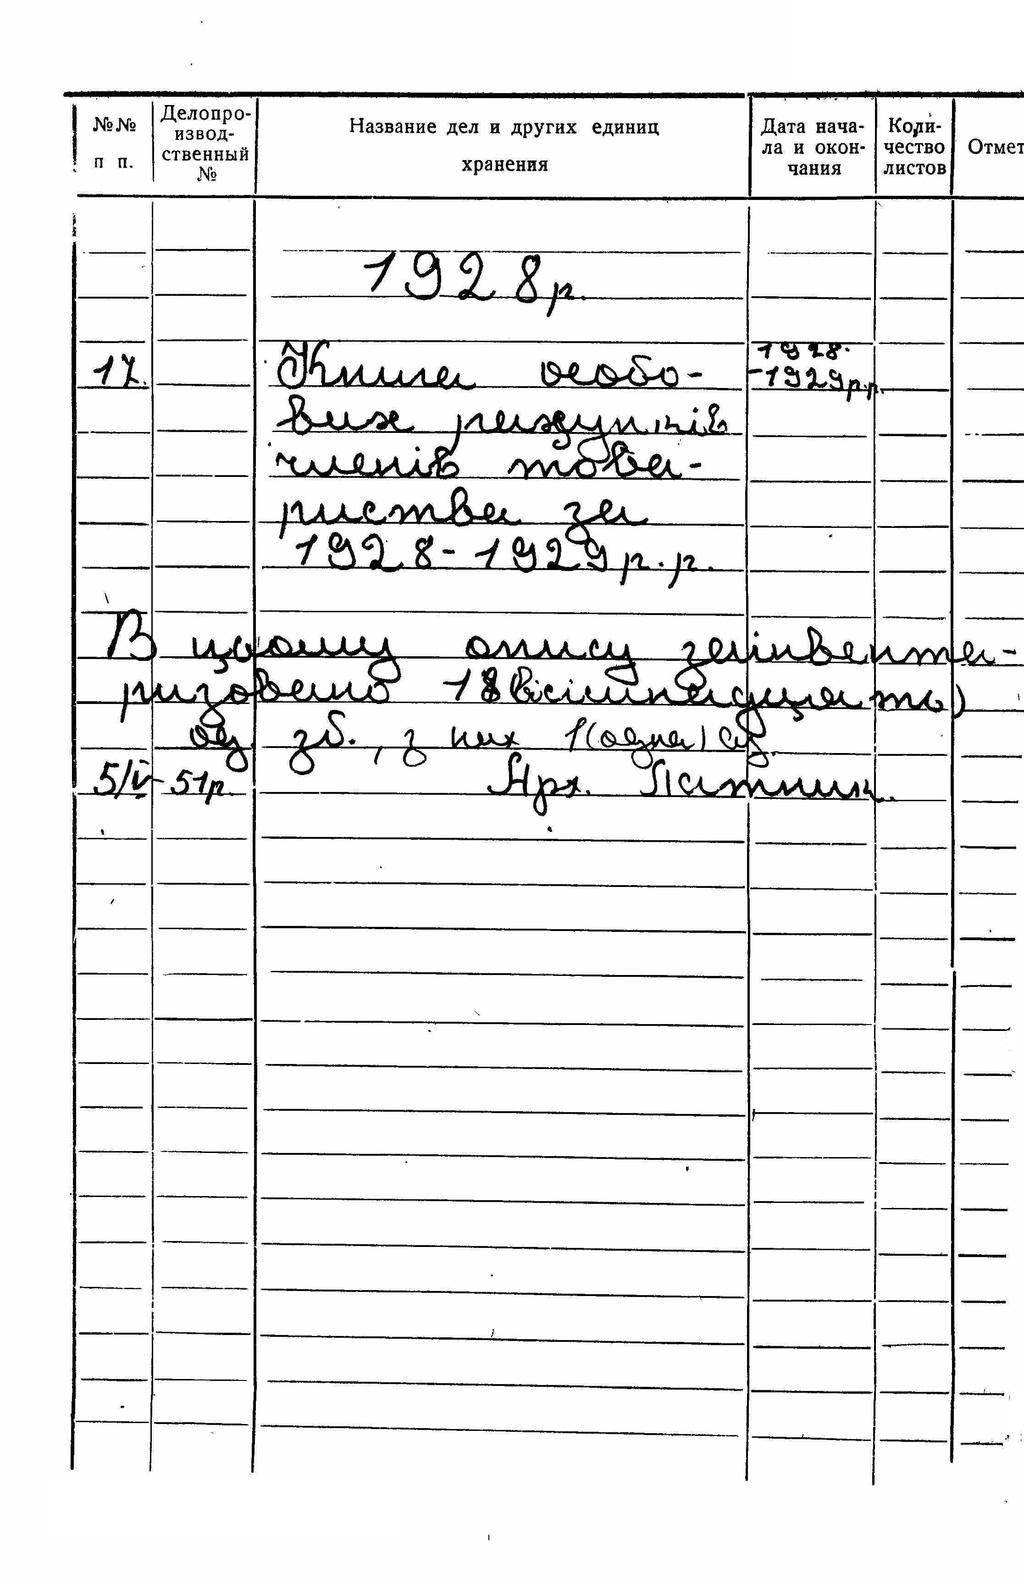 №№ п п.
Делопро-
извод-
ственный
№
Название дел и других единиц
хранения
Дата нача-
ла и окон-
чания
Коли-
чество
листов
Отмет
1928 р.
17. Книга особо- 1928-
-1929 р.р.
вих рахунків
членів това-
риства за
1928-1929 р.р.
В цьому опису заінвента-
ризовано 18 (вісімнадцять)
од. зб., з них 1 (одна)
5/V-51р. Арх.